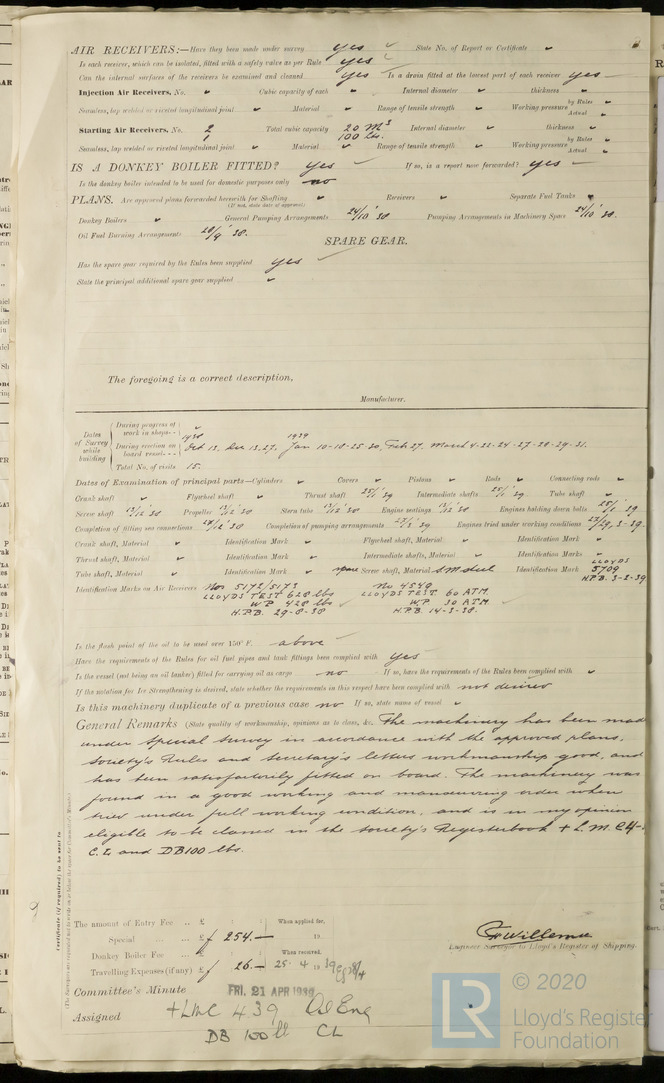 AIR RECEIVERS:—Have they been made under survey yes State No. of Report or Certificate
Is each receiver, which can be isolated, fitted with a safety valve as per Rule yes
Can the internal surfaces of the receivers be examined and cleaned yes Is a drain fitted at the lowest part of each receiver yes
Injection Air Receivers, No. Cubic capacity of each Internal diameter thickness
Seamless, lap welded or riveted longitudinal joint Material Range of tensile strength Working pressure by Rules Actual
Starting Air Receivers, No. 2 Total cubic capacity 20 M³ Internal diameter thickness
1 100 Ltr.
Seamless, lap welded or riveted longitudinal joint Material Range of tensile strength Working pressure by Rules Actual
IS A DONKEY BOILER FITTED? yes If so, is a report now forwarded? yes
Is the donkey boiler intended to be used for domestic purposes only no
PLANS. Are approved plans forwarded herewith for Shafting Receivers Separate Fuel Tanks
(If not, state date of approval)
Donkey Boilers General Pumping Arrangements 24/10 '38 Pumping Arrangements in Machinery Space 24/10 '38.
Oil Fuel Burning Arrangements 28/9 '38.
SPARE GEAR.
Has the spare gear required by the Rules been supplied yes
State the principal additional spare gear supplied
The foregoing is a correct description,
Manufacturer.
Dates of Survey while building
During progress of work in shops--
1938 1939
During erection on board vessel--- Oct 13. Dec 13.27. Jan 10-18-25-30, Feb 27, March 4-22-24-27-28-29-31.
Total No. of visits 15.
Dates of Examination of principal parts—Cylinders Covers Pistons Rods Connecting rods
Crank shaft Flywheel shaft Thrust shaft 25/1 '39 Intermediate shafts 25/1 '39 Tube shaft
Screw shaft 13/12 '38 Propeller 13/12 '38 Stern tube 13/12 '38 Engine seatings 13/12 '38 Engines holding down bolts 25/1 '39
Completion of fitting sea connections 27/12 '38 Completion of pumping arrangements 27/3 '39 Engines tried under working conditions 27/29, 3-39.
Crank shaft, Material Identification Mark Flywheel shaft, Material Identification Mark
Thrust shaft, Material Identification Mark Intermediate shafts, Material Identification Marks
Tube shaft, Material Identification Mark spare Screw shaft, Material S.M. steel Identification Mark LLOYDS 5709 H.P.B. 3-2-39
Identification Marks on Air Receivers Nos 5172/5173 No 4540
LLOYDS TEST 628 lbs LLOYDS TEST 60 ATM.
W.P. 428 lbs W.P. 30 ATM.
H.P.B. 29-8-38 H.P.B. 14-3-38.
Is the flash point of the oil to be used over 150° F. above
Have the requirements of the Rules for oil fuel pipes and tank fittings been complied with Yes
Is the vessel (not being an oil tanker) fitted for carrying oil as cargo no If so, have the requirements of the Rules been complied with
If the notation for Ice Strengthening is desired, state whether the requirements in this respect have been complied with not desired
Is this machinery duplicate of a previous case no If so, state name of vessel
General Remarks (State quality of workmanship, opinions as to class, &c. The machinery has been made
under special survey in accordance with the approved plans,
Society's Rules and Secretary's letters workmanship good, and
has been satisfactorily fitted on board. The machinery was
found in a good working and manoeuvring order when
tried under full working condition, and is in my opinion
eligible to be classed in the Society's Registerbook + L.M.C. 4-
C.L. and DB 100 lbs.
Certificate (if required) to be sent to
The amount of Entry Fee .. £ When applied for,
Special ... ... £ ƒ 254.— 19
Donkey Boiler Fee ... £ When received,
Travelling Expenses (if any) £ ƒ 26.— 25.4 1939
Willems
Engineer Surveyor to Lloyd's Register of Shipping.
Committee's Minute FRI. 21 APR 1939
Assigned + LMC 4.39 Oil Eng
DB 100 lb CL
LR
© 2020
Lloyd's Register
Foundation